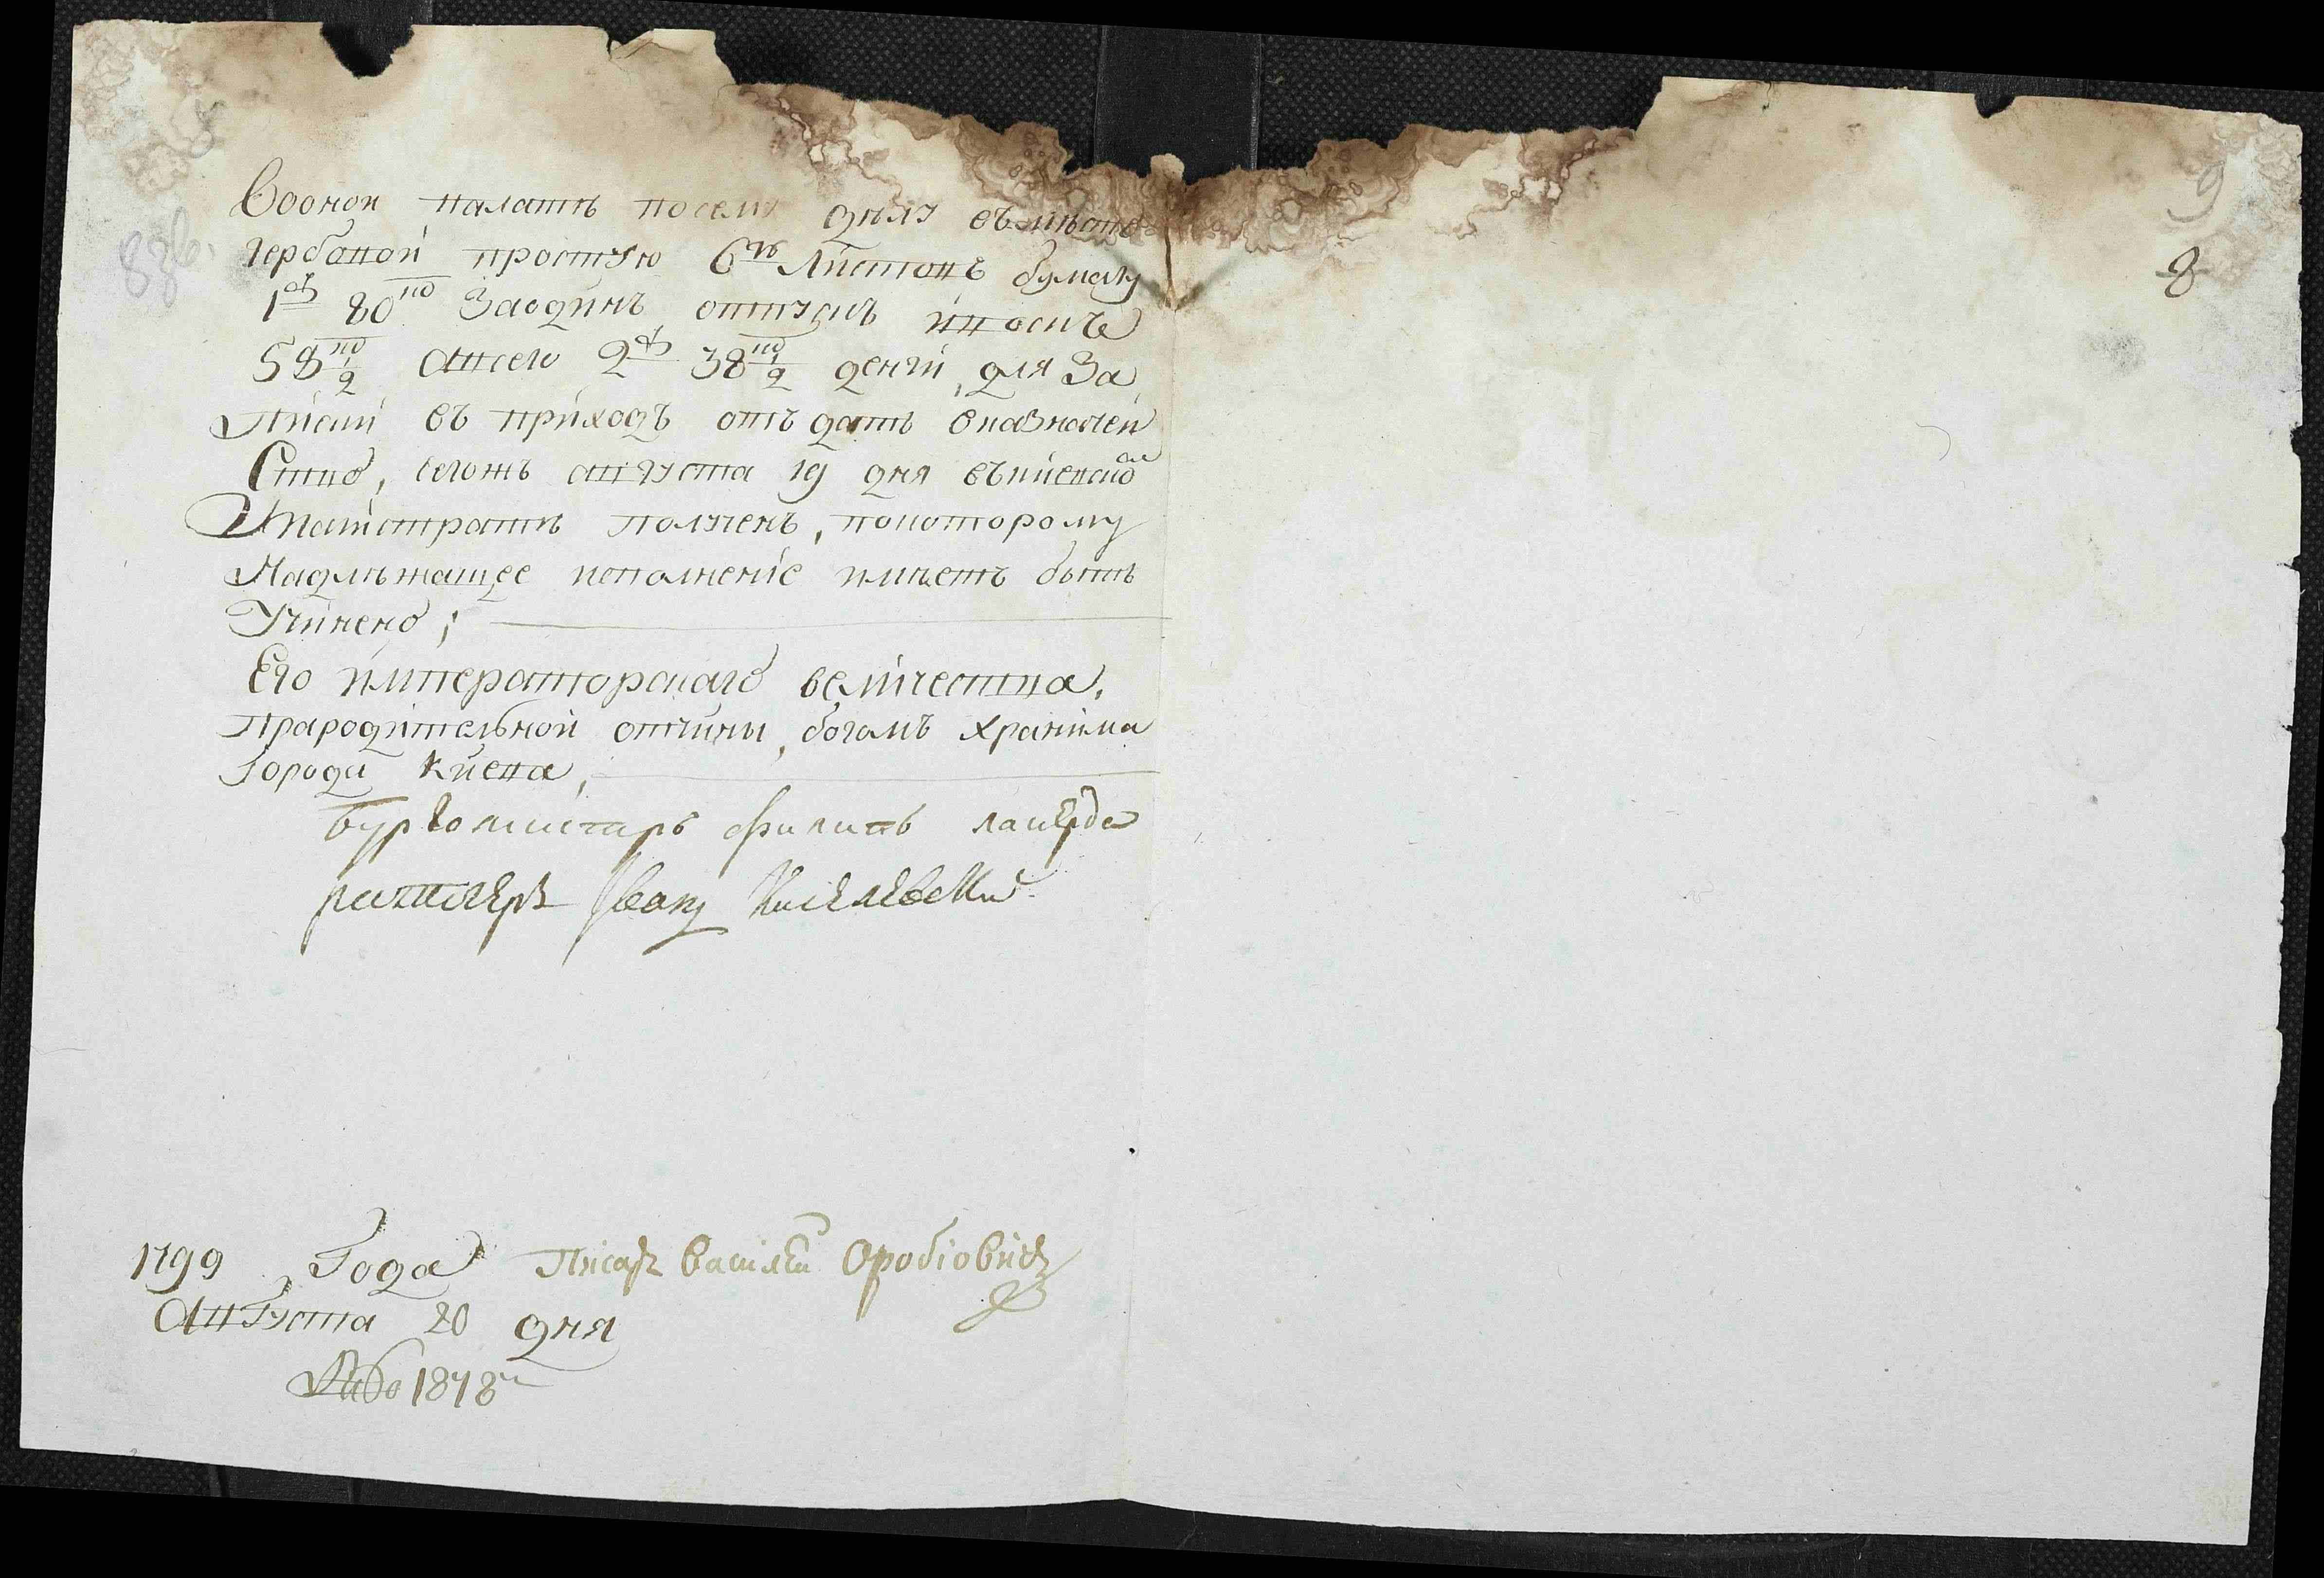 Воонои палатѣ посему дѣлу въмѣсто
гербовой простую 6ть листовъ бумагу
1 ру 80 ко заодинъ оттускъ ивоскъ
58 ко 1/2 авсего 2 ру 38 ко 1/2 денги, для за
писки въ приходъ отъдать вказначей
ство, сегожъ августа 19 дня въкиевском
Магистратѣ полученъ, покоторому
Надлѣжащее исполненіе имѣетъ быть
Учинено;
Его императорскаго величества,
Прародителной отчины, богомъ хранима
города Киева,
бургомистръ Филипъ
ратсгеръ Иванъ Киселевский
1799 Года Писарь Василий Оробіовичъ
Августа 20 дня
№ 1878
8
9